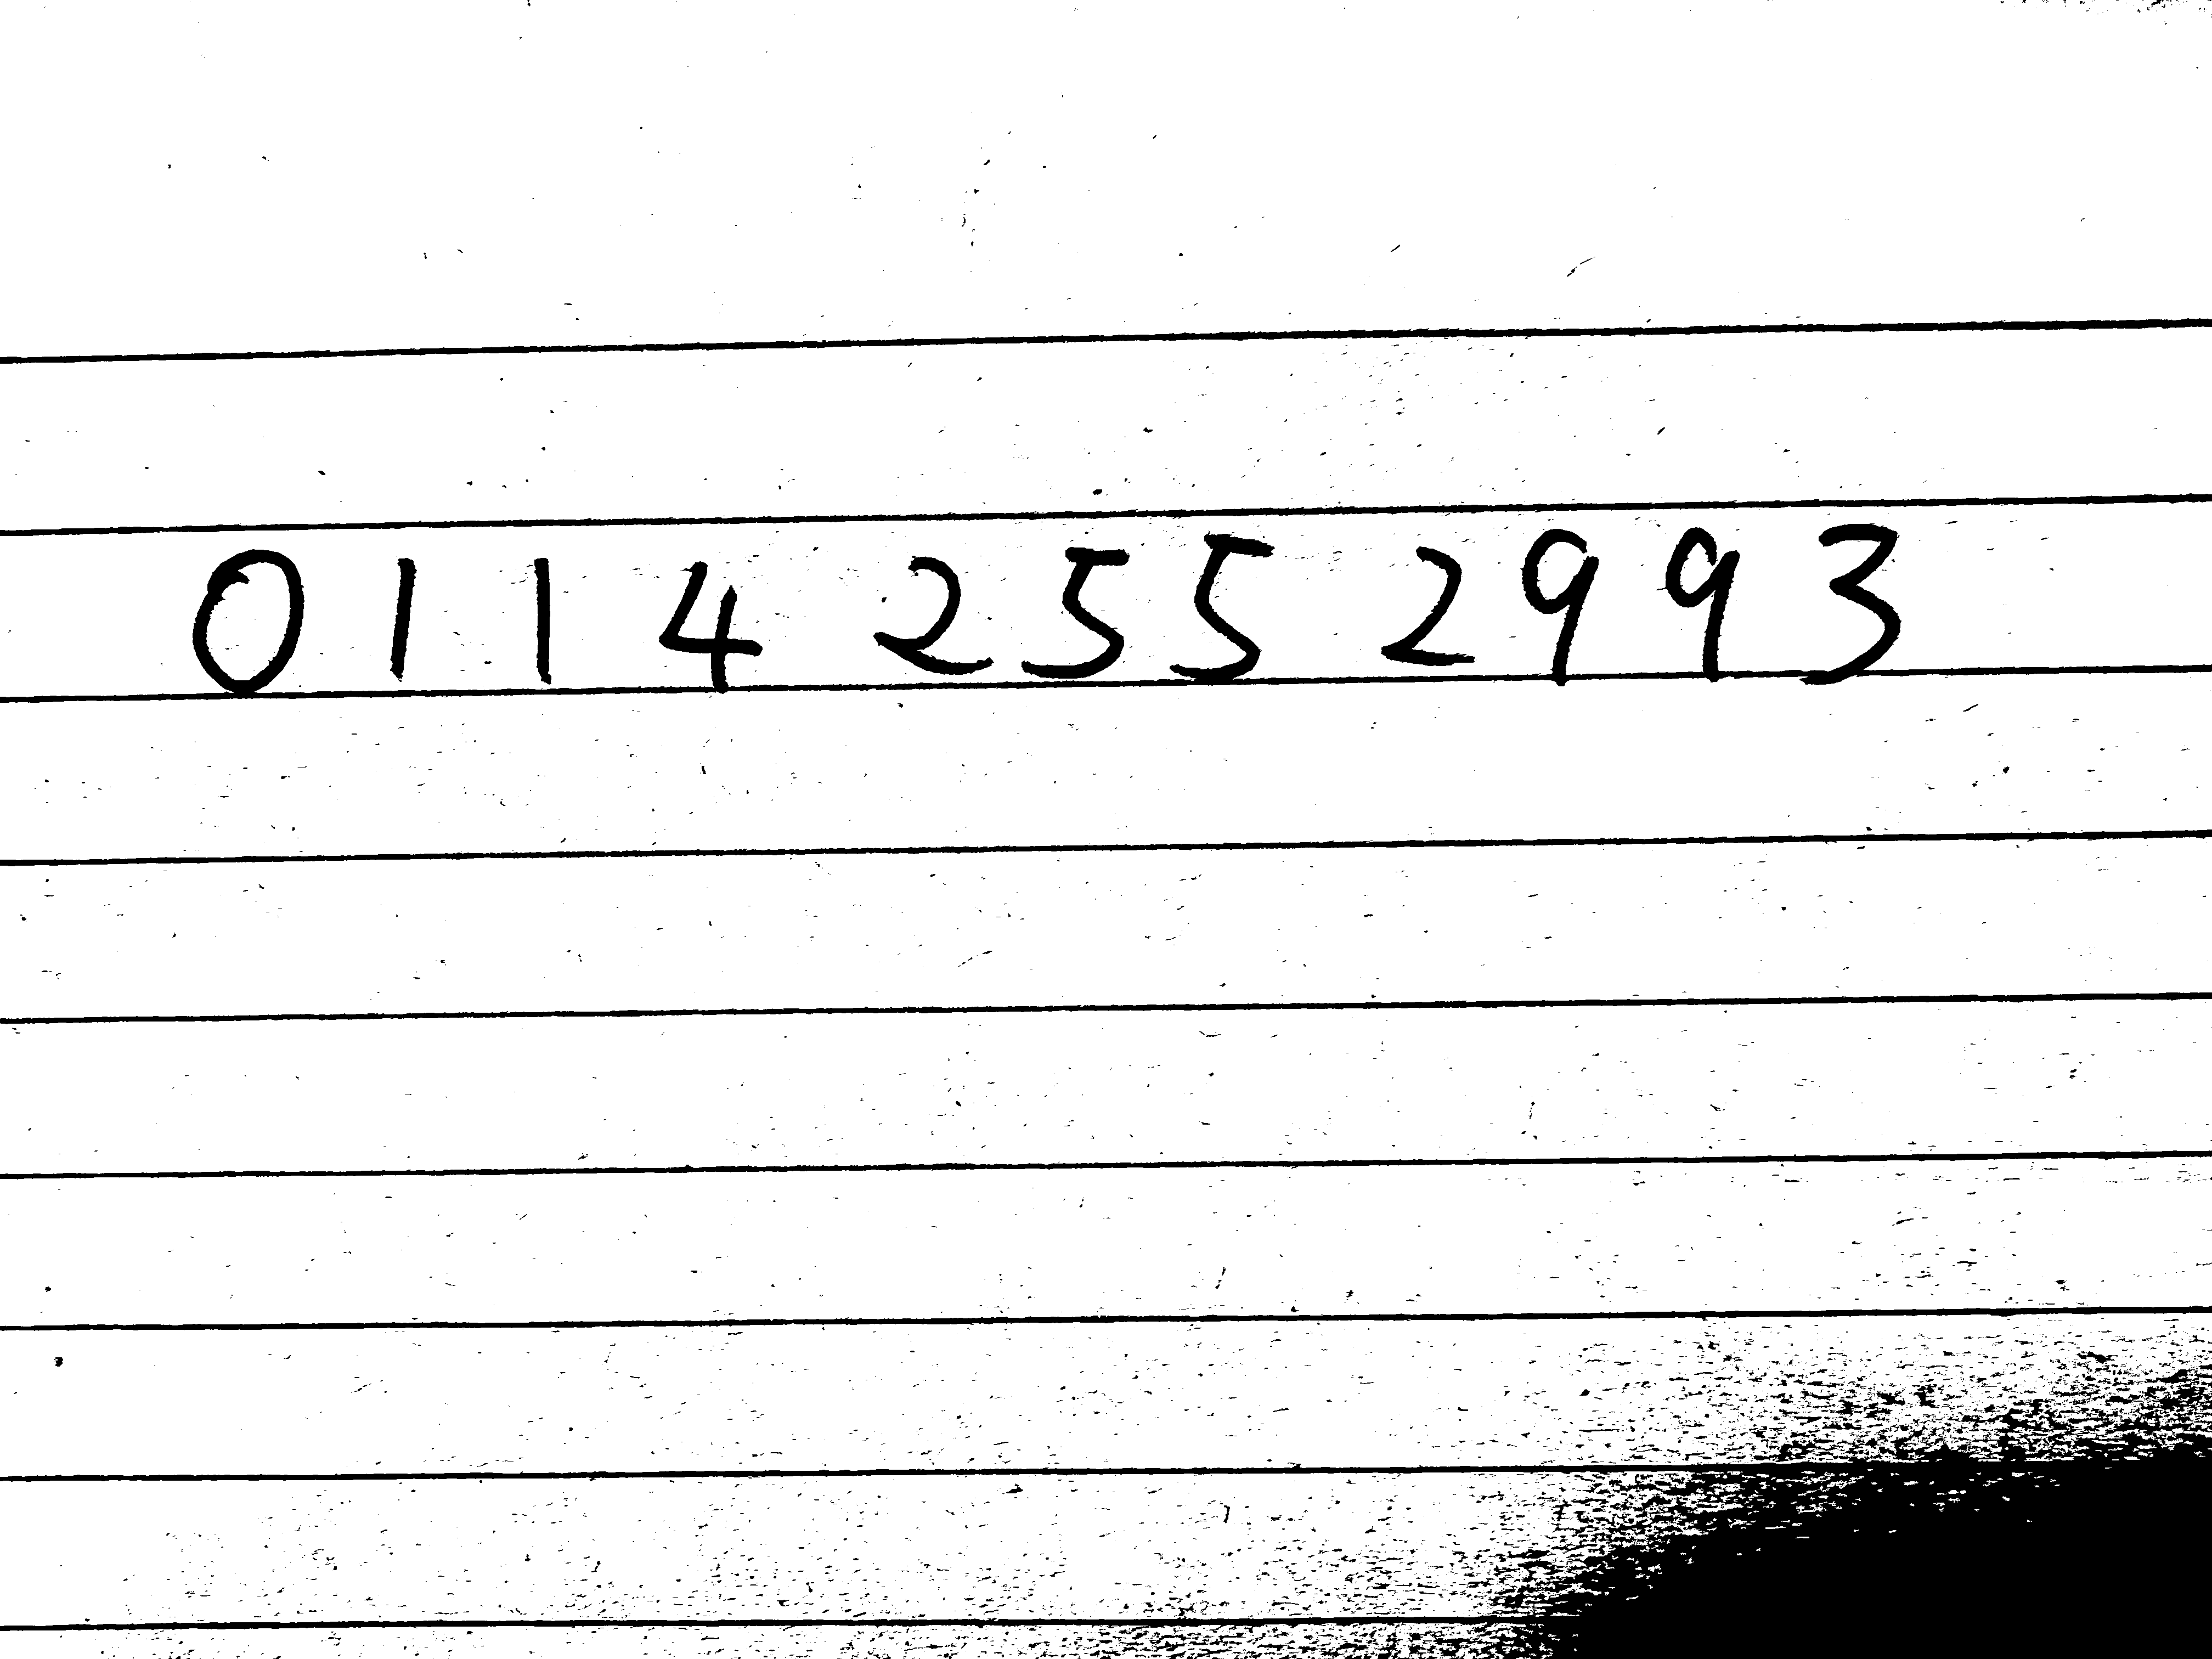 0114 255 2993